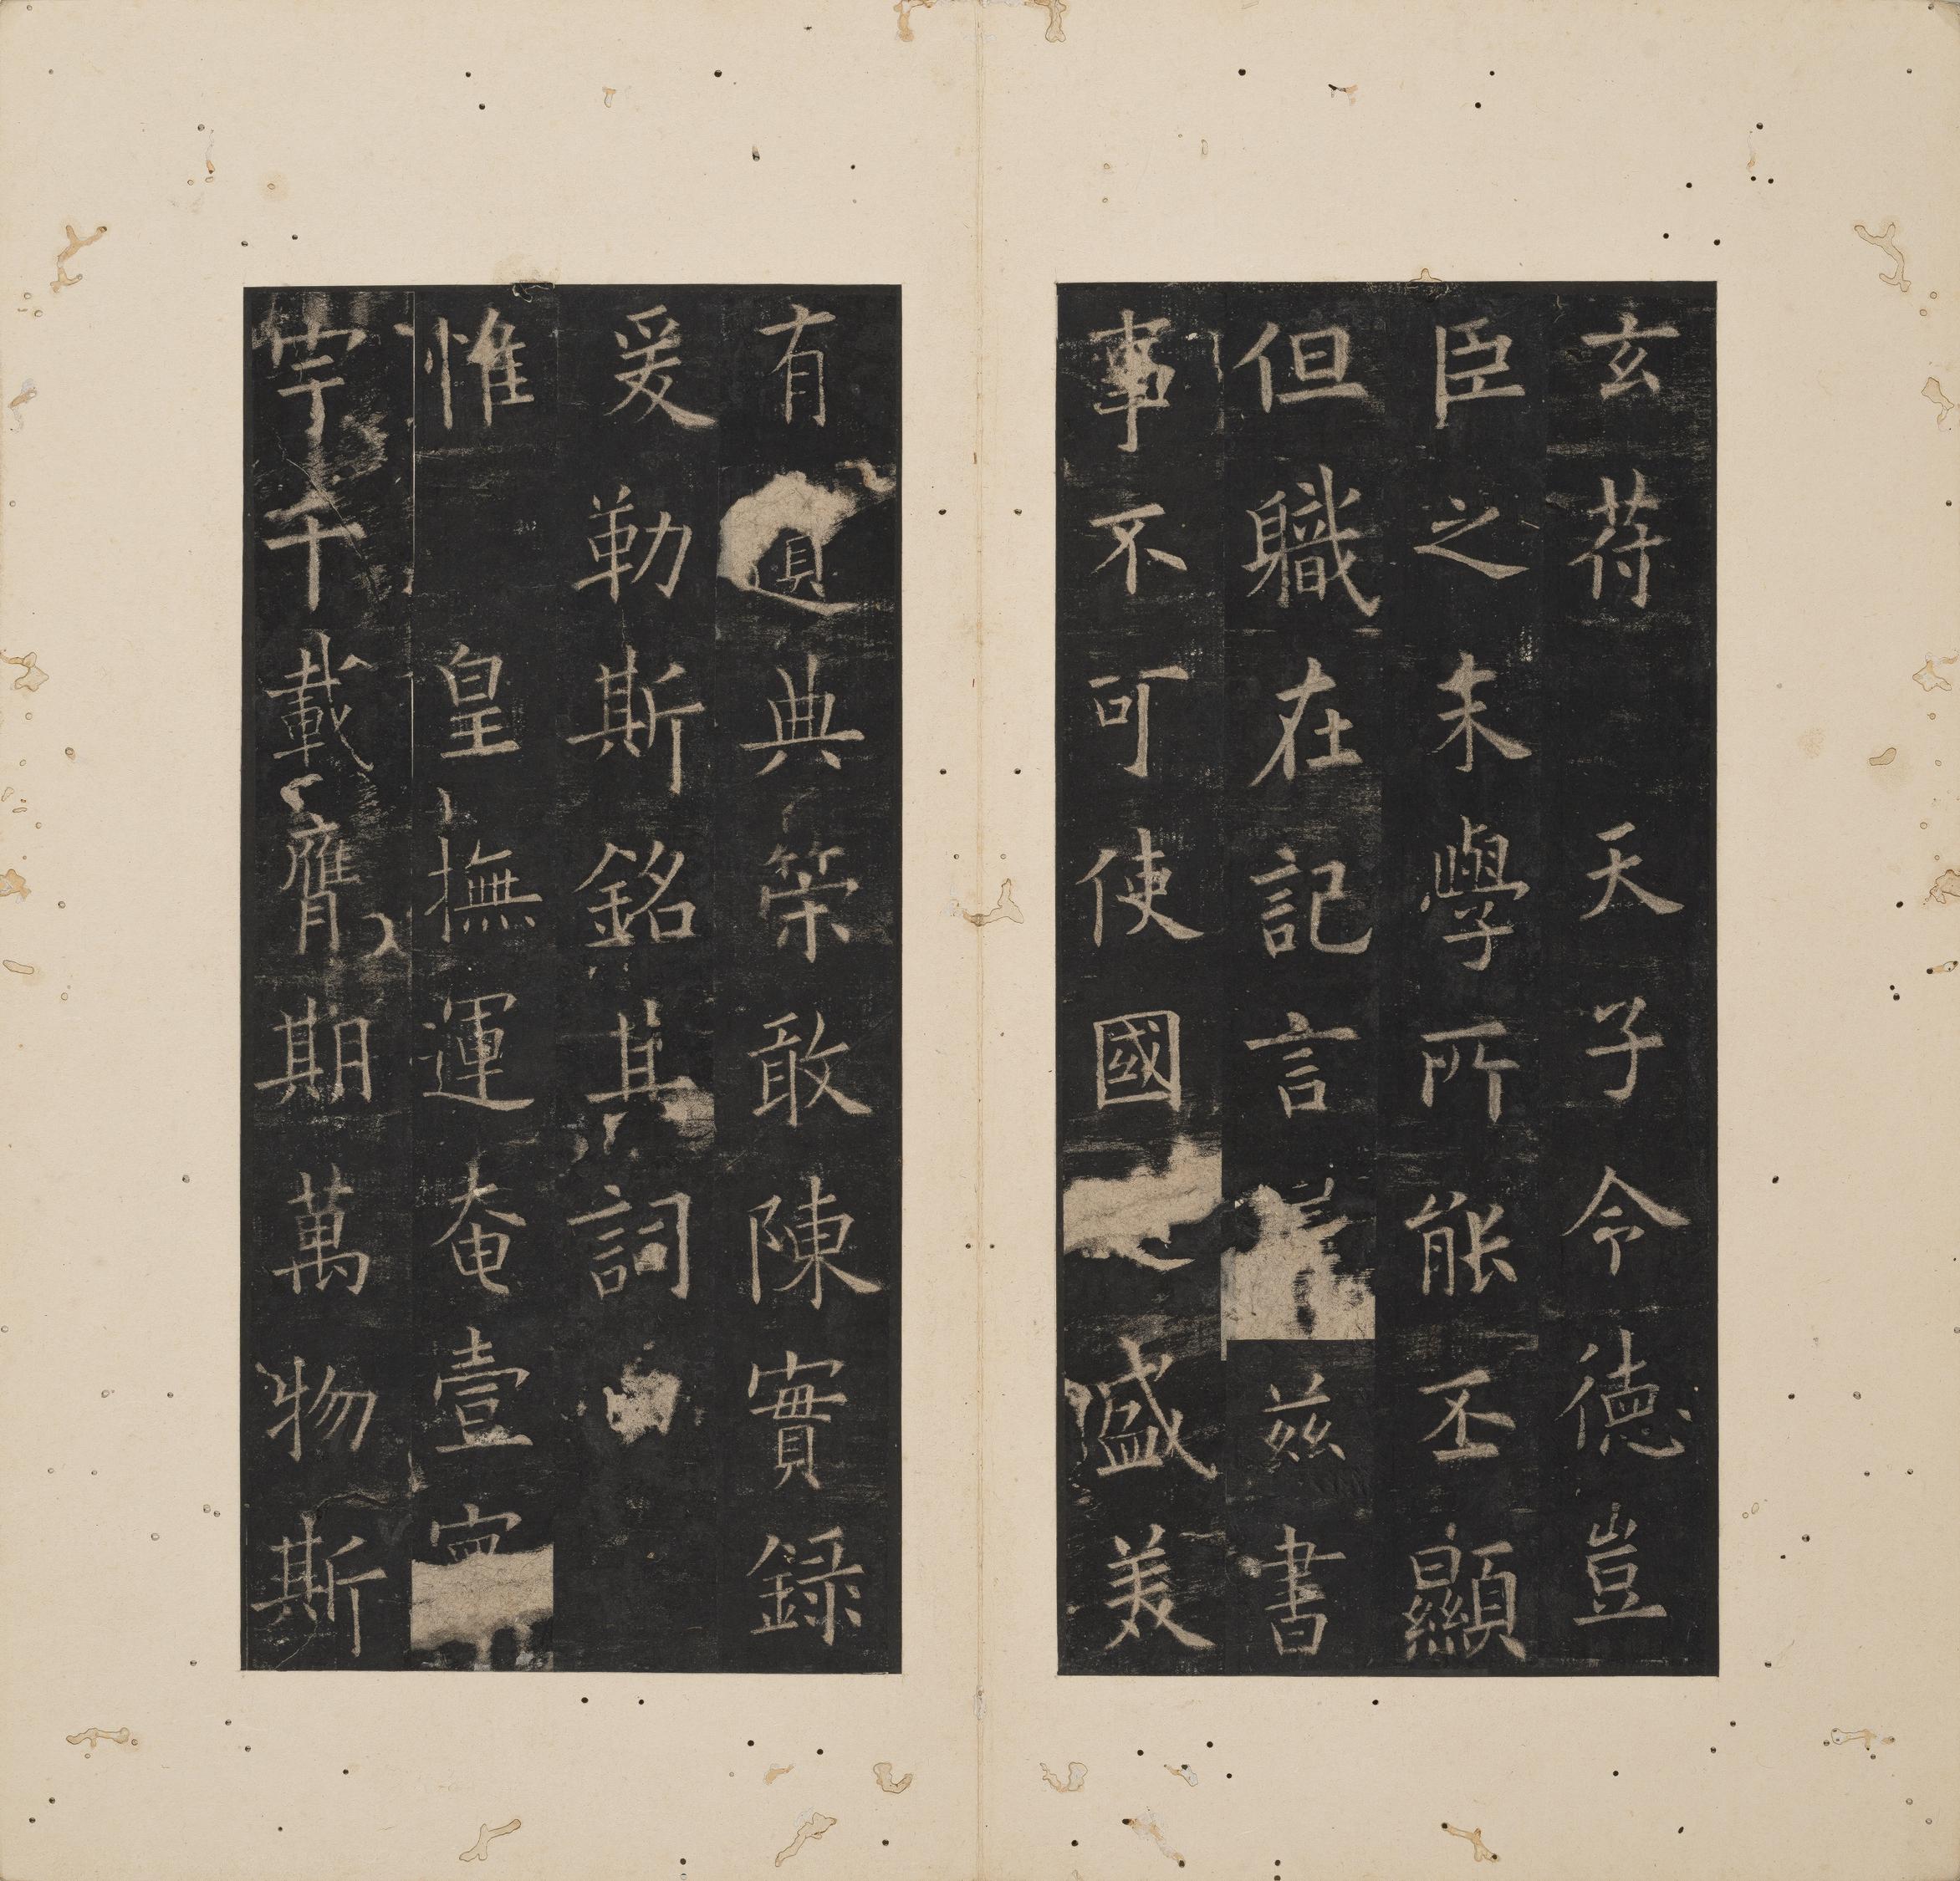 玄苻　天子令徳豈
臣之末學所能丕顯
但軄在記言兹書
事不可使國之盛美
有遺典筞敢陳實録
爰勒斯銘其詞
惟　皇撫運奄壹寰
宇千載膺期萬物斯